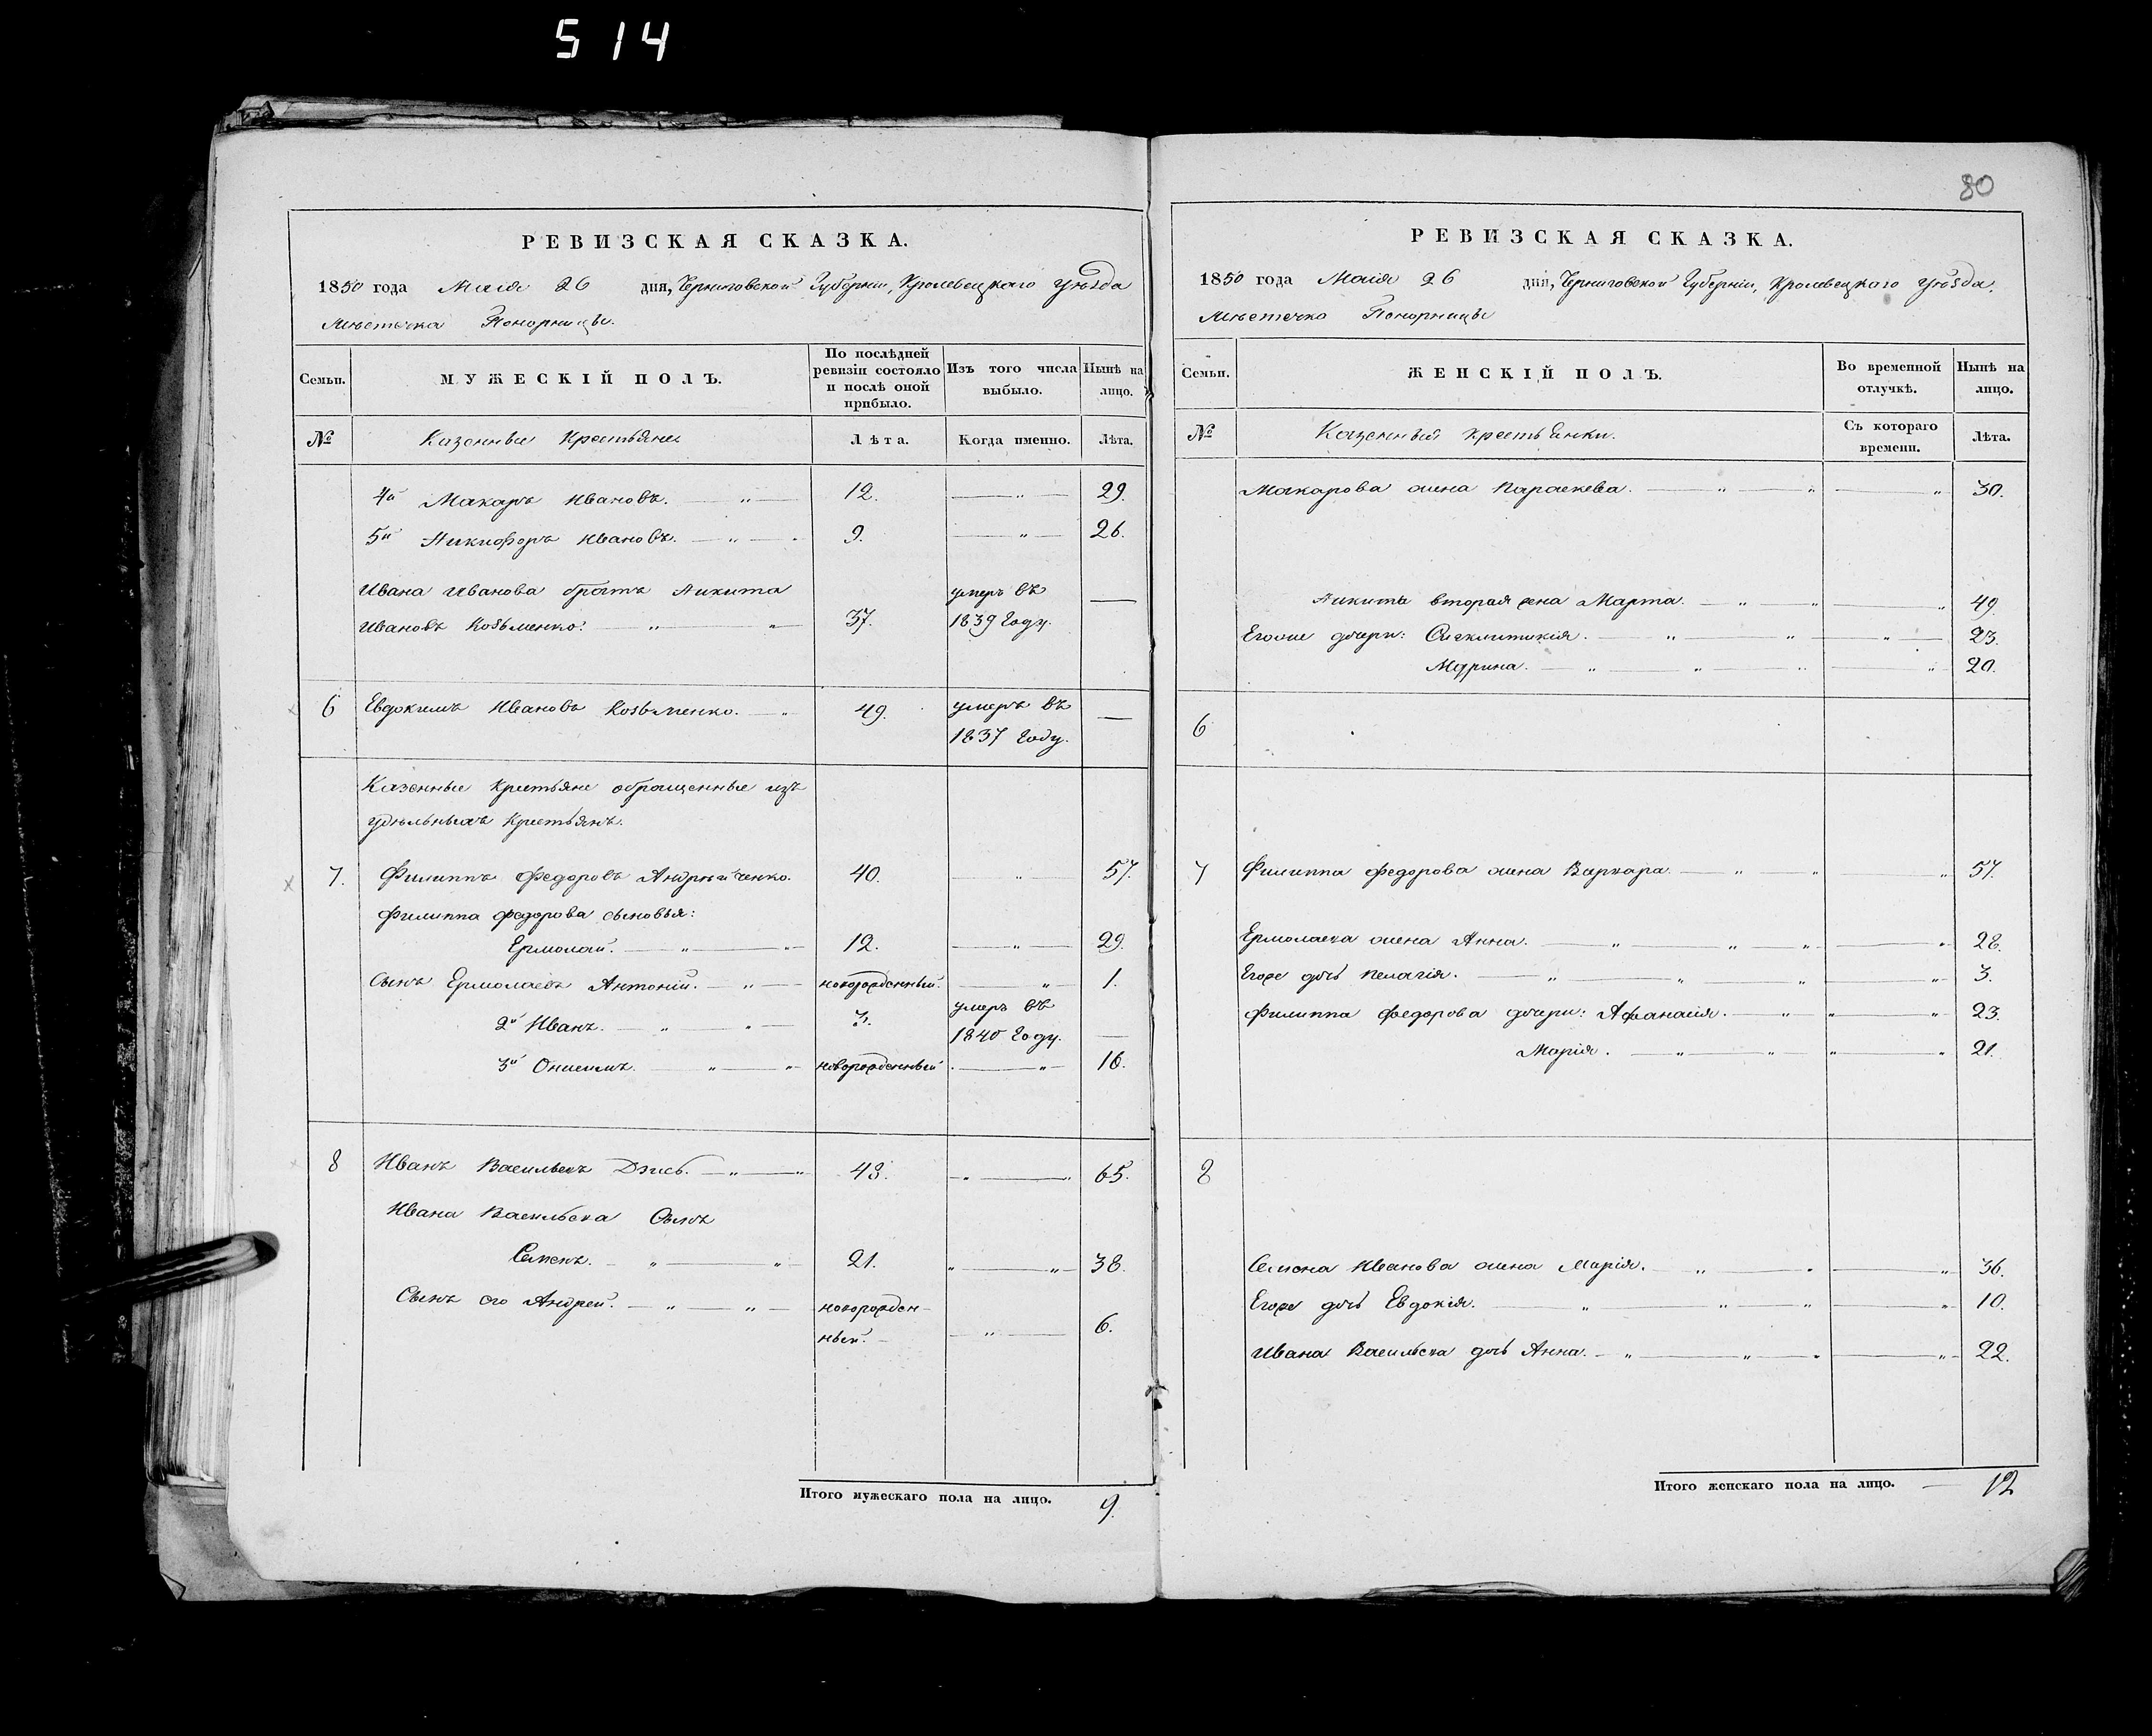 514
РЕВИЗСКАЯ СКАЗКА.
1850 года Маія 26 дня, Черниговской Губерніи, Кролевецкаго Уѣзда
Мѣстечка Понорницы.
Семьи.
МУЖЕСКІЙ ПОЛЪ.
По послѣдней ревизіи состояло и послѣ оной прибыло.
Изъ того числа выбыло.
Нынѣ на лицо.
№ Казенные Крестьяне Лѣта. Когда именно. Лѣта.
4й Макаръ Ивановъ. — „ — 12. — „ — 29.
5й Никифоръ Ивановъ. — „ — 9. — „ — 26.
Ивана Иванова братъ Никита умеръ въ —
Ивановъ Козьменко. — „ — „ — 37. 1839 Году.
6 Евдокимъ Ивановъ Козьменко. — „ 49. умеръ въ —
1837 Году.
Казенные Крестьяне обращенные изъ
удѣльныхъ Крестьянъ.
7. Филиппъ Федоровъ Андрѣйченко. 40. — „ — 57.
Филиппа Федорова сыновья:
Ермолай. — „ — „ 12. — „ — 29.
Сынъ Ермолаевъ Антоній. — „ — новорожденный. — „ — 1.
2й Иванъ. — „ „ — 3. умеръ въ
1840 Году. —
3й Онисимъ. — „ — „ новорожденный — „ — 16.
8 Иванъ Васильевъ — „ — „ 48. — „ — „ 65.
Ивана Васильева Сынъ
Семенъ. — „ — „ — 21. „ — „ — 38.
Сынъ его Андрей. — „ — „ — новорожден-
ный. — — „ — 6.
Итого мужескаго пола на лицо. 9.
80
РЕВИЗСКАЯ СКАЗКА.
1850 года Маія 26 дня, Черниговской Губерніи, Кролевецкаго Уѣзда.
Мѣстечко Понорницы
Семьи.
ЖЕНСКІЙ ПОЛЪ.
Во временной отлучкѣ.
Нынѣ на лицо.
№ Казенный крестьянки. Съ котораго времени. Лѣта.
Макарова жена Параскева. — „ — „ — „ 30.
Никиты вторая жена Марта. — „ — „ — „ 49.
Егоже дочери: Сигклитикія. — „ — „ — „ — 23.
Марина. — „ — „ — „ — „ — 20.
6
7 Филиппа Федорова жена Варвара — „ — „ „ 57.
Ермолаева жена Анна. — „ — „ — „ — „ 28.
Егоже дочь Пелагія. — „ — „ — „ — „ 3.
Филиппа Федорова дочери: Афанасія. — „ — „ — „ 23.
Марія. — „ — „ — „ — „ 21.
8
Семена Иванова жена Марія. — „ — „ — „ 36.
Егоже дочь Евдокія. — „ — „ — „ — „ 10.
Ивана Васильева дочь Анна. — „ — „ — „ — „ 22.
Итого женскаго пола на лицо. — 12